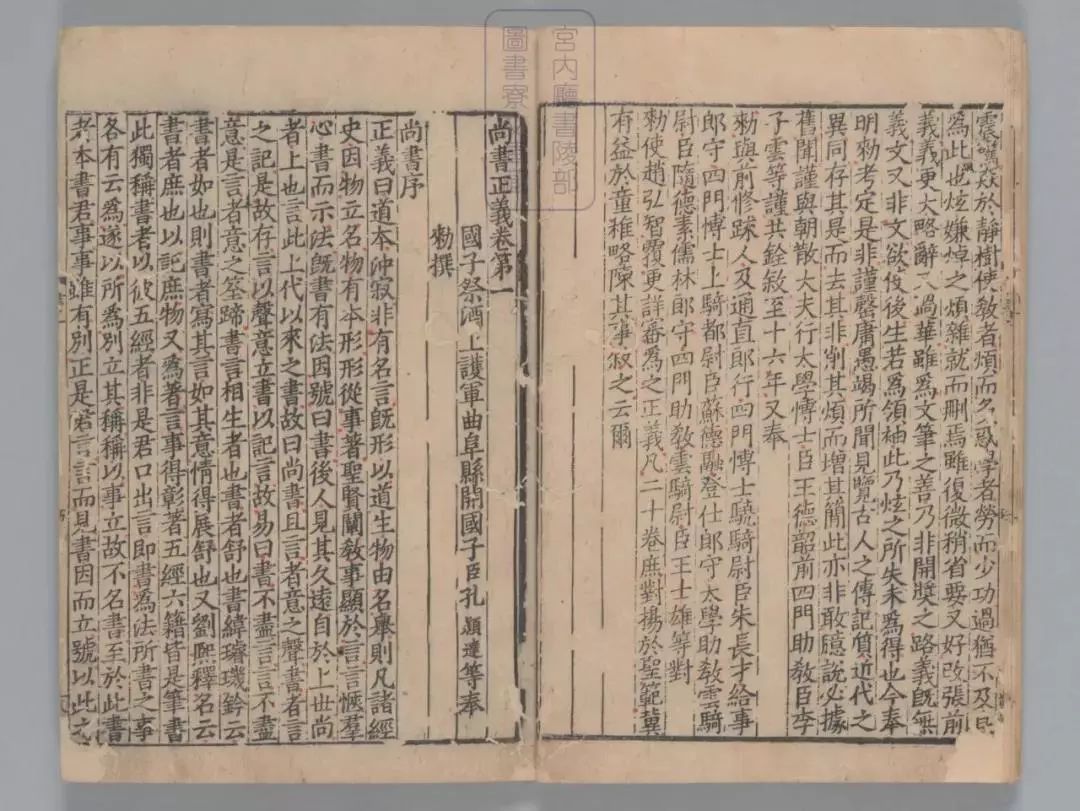 宮内廳書陵部
圖書寮
震驚焱於靜樹使敎者煩而多惑學者勞而少功過猶不及
為此也炫嫌焯之煩雜就而刪焉雖復微稍省要又好改張前
義義更太略辭又過華雖爲文筆之善乃非開奬之路義旣無
義文又非文欲使後生若爲領袖此乃炫之所失未爲得也今奉
明勑考定是非謹罄庸愚竭所聞見覽古人之傳記質近代之
異同存其是而去其非削其煩而增其簡此亦非敢臆說必據
舊聞謹與朝散大夫行大學博士臣王德韶前四門助敎臣李
子雲等謹共銓敘至十六年又奉
勑與前修䟽人及通直郎行四門博士驍騎尉臣朱長才給事
郎守四門博士上騎都尉臣蘇德融登仕郎守太學助敎雲騎
尉臣隨德素儒林郎守四門助敎雲騎尉臣王士雄等對
勑使趙弘智覆更詳審爲之正義凡二十卷庶對揚於聖範冀
有益於童稚略陳其事敘之云爾
尚書正義卷第一
國子祭酒上護軍曲阜縣開國子臣孔穎達等奉
勑撰
尚書序
正義曰道本沖寂非有名言旣形以道生物由名舉則凡諸經
史因物立名物有本形形從事著聖賢闡敎事顯於言言愜羣
心書而示法旣書有法因號曰書後人見其久遠自於上世尚
者上也言此上代以來之書故曰尚書且言者意之聲書者言
之記是故存言以聲意立書以記言故易曰書不盡言言不盡
意是言者意之筌蹄書言相生者也書者舒也書緯璿璣鈐云
書者如也則書者寫其言如其意情得展舒也又劉熙釋名云
書者庶也以記庶物又爲著言事得彰著五經六籍皆是筆書
此獨稱書者以彼五經者非是君口出言即書爲法所書之事
各有云爲遂以所爲別立其稱稱以事立故不名書至於此書
者本書君事事雖有別正是君言言而見書因而立號以此之